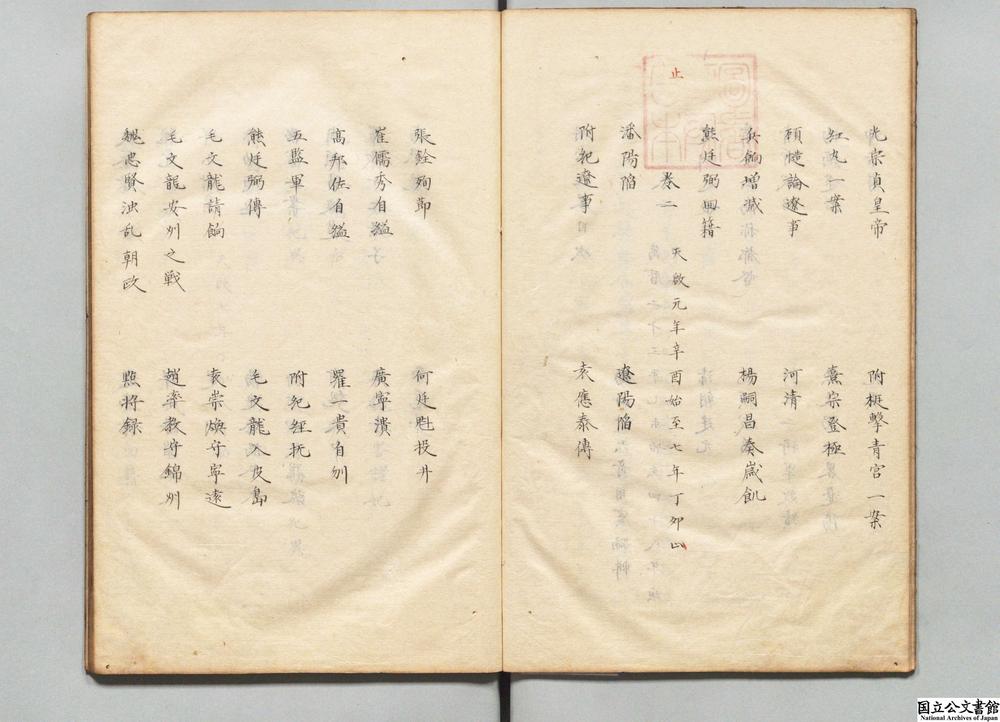 光宗貞皇帝　附梃擊青宮一案
紅丸一案　熹宗登極
顧慥論遼事　河清
兵餉增減　楊嗣昌奏歲飢
熊廷弼回籍
止　卷二　天啟元年辛酉始至七年丁卯止
瀋陽陷　遼陽陷
附紀遼事　袁應泰傳
張銓殉節　何廷魁投井
崔儒秀自縊　廣寧潰
高邦佐自縊　羅一貴自刎
五監軍　附紀經抚
熊廷弼傳　毛文龍入皮島
毛文龍請餉　袁崇煥守寧遠
毛文龍安州之戰　趙率教守錦州
魏忠賢浊乱朝政　點將録
国立公文書館
National Archives of Japan